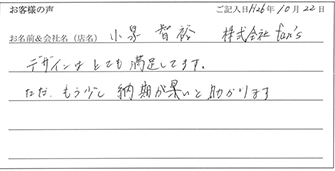 お客様の声 ご記入日H26年10月22日
お名前&会社名(店名) 小泉 智裕 株式会社 fan's
デザインはとても満足してます。
ただ、もう少し納期が早いと助かります